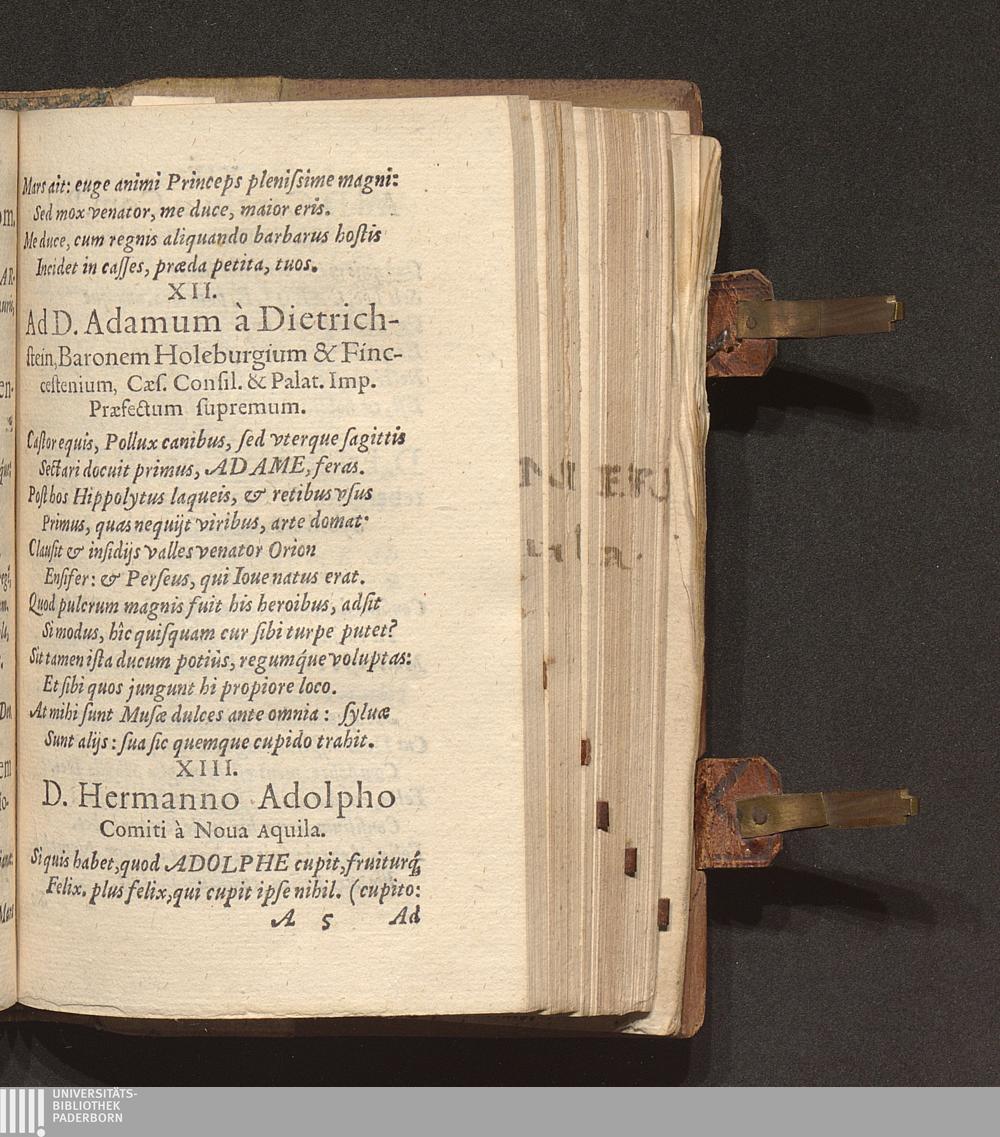 Mars ait: euge animi Princeps pleniſsime magni:
Sed mox venator, me duce, maior eris.
Me duce, cum regnis aliquando barbarus hoſtis
Incidet in caſſes, præda petita, tuos.
XII.
Ad D. Adamum à Dietrich-
ſtein, Baronem Holeburgium & Finc-
ceſtenium, Cæſ. Conſil. & Palat. Imp.
Præfectum ſupremum.
Caſtor equis, Pollux canibus, ſed vterque ſagittis
Sectari docuit primus, ADAME, feras.
Poſt hos Hippolytus laqueis, & retibus vſus
Primus, quas nequijt viribus, arte domat.
Clauſit & inſidijs valles venator Orion
Enſifer: & Perſeus, qui Ioue natus erat.
Quod pulcrum magnis fuit his heroibus, adſit
Si modus, hîc quiſquam cur ſibi turpe putet?
Sit tamen iſta ducum potiùs, regumq́ue voluptas:
Et ſibi quos jungunt hi propiore loco.
At mihi ſunt Muſæ dulces ante omnia: ſyluæ
Sunt alijs: ſua ſic quemque cupido trahit.
XIII.
D. Hermanno Adolpho
Comiti à Noua Aquila.
Si quis habet, quod ADOLPHE cupit, fruiturq́;
Felix. plus felix, qui cupit ipſe nihil. (cupito:
A 5 Ad
UNIVERSITÄTS-
BIBLIOTHEK
PADERBORN